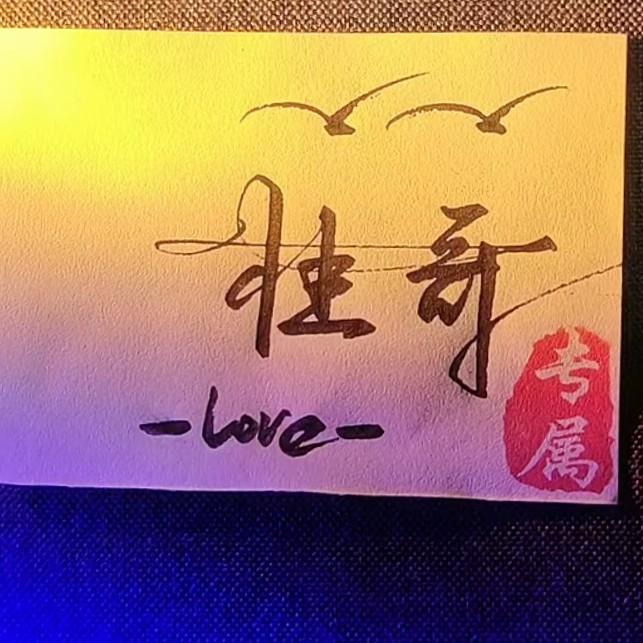 壮哥
-Love-
专属